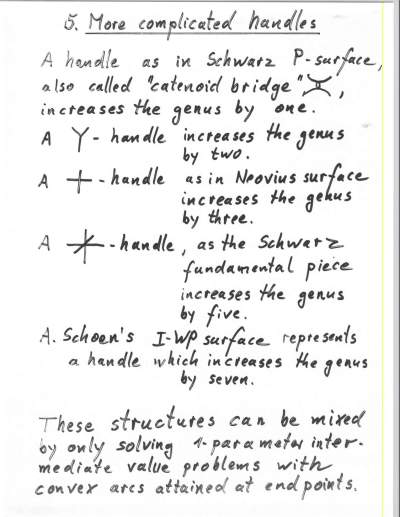 5. More complicated handles
A handle as in Schwarz P-surface,
also called "catenoid bridge" ,
increases the genus by one.
A Y-handle increases the genus
by two.
A +-handle as in Neovius surface
increases the genus
by three.
A -handle, as the Schwarz
fundamental piece
increases the genus
by five.
A. Schoen's I-WP surface represents
a handle which increases the genus
by seven.
These structures can be mixed
by only solving 1-parameter inter-
mediate value problems with
convex arcs attained at endpoints.